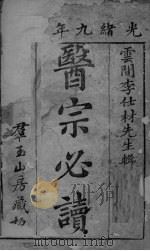 光緒九年
雲間李仕材先生輯
醫宗必讀
羣玉山房藏